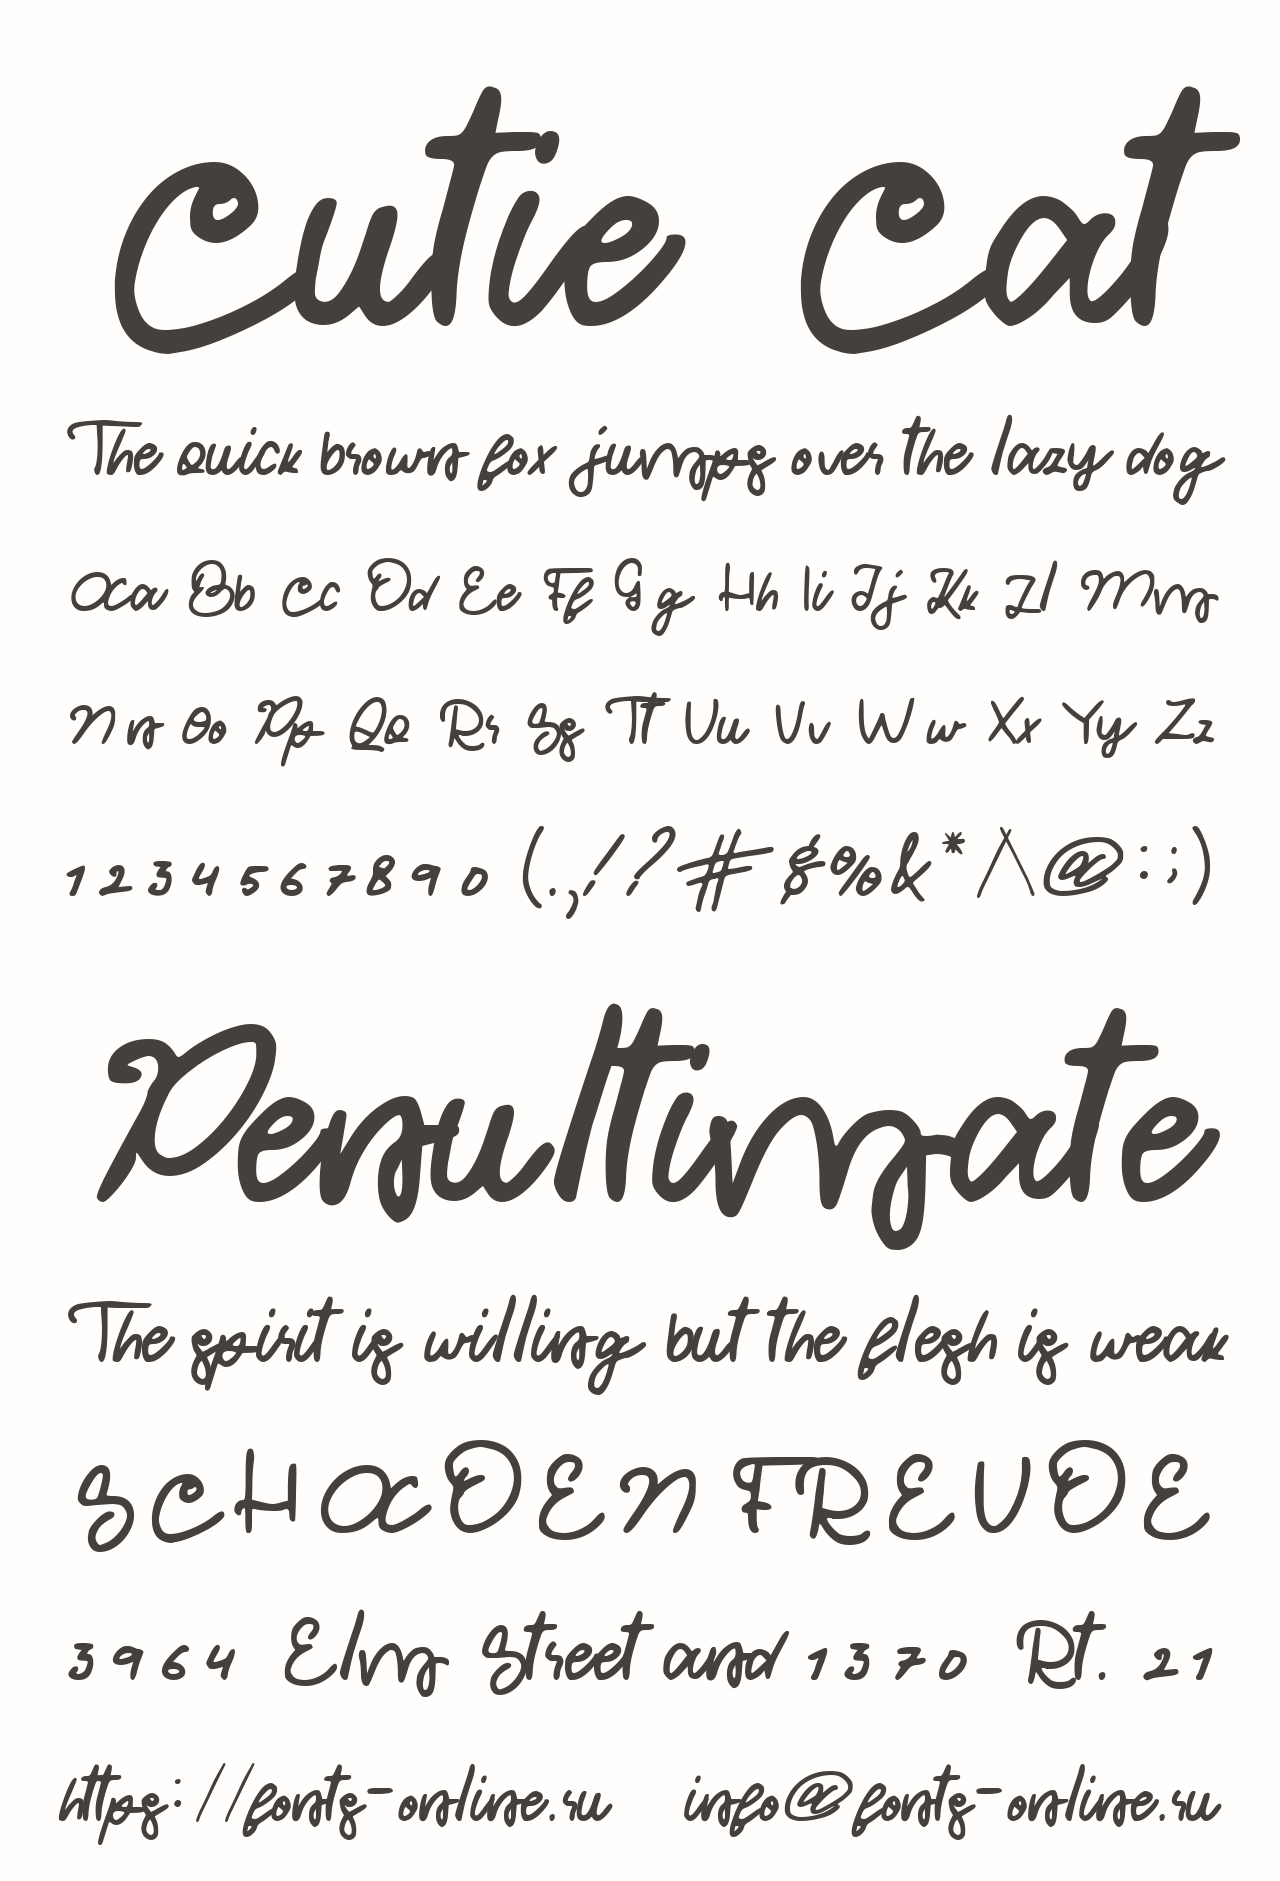 Cutie Cat
The quick brown fox jumps over the lazy dog
Aa Bb Cc Dd Ee Ff Gg Hh Ii Jj Kk Ll Mm
Nn Oo Pp Qq Rr Ss Tt Uu Vv Ww Xx Yy Zz
1 2 3 4 5 6 7 8 9 0 (.,!?#$%&*/\@:;)
Penultimate
The spirit is willing but the flesh is weak
SCHADEN FREUDE
3964 Elm Street and 1370 Rt. 21
https://fonts-online.ru info@fonts-online.ru